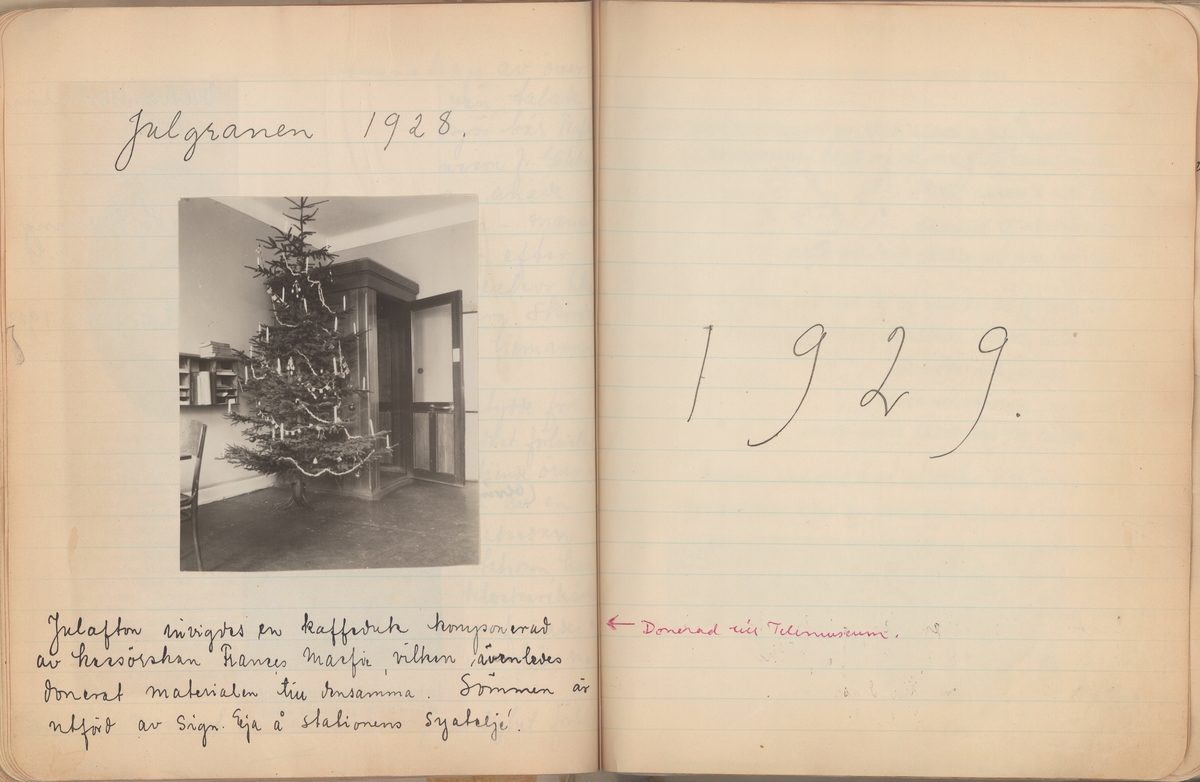 Julgranen 1928.
Julafton invigdes en kaffeduk komponerad
av kassörskan Frances Marfie, vilken ävenledes
donerat materialen till densamma. Sömmen är
utförd av Sign. Eja å stationens syateljé.
1929.
← Donerad till Telemuseum.